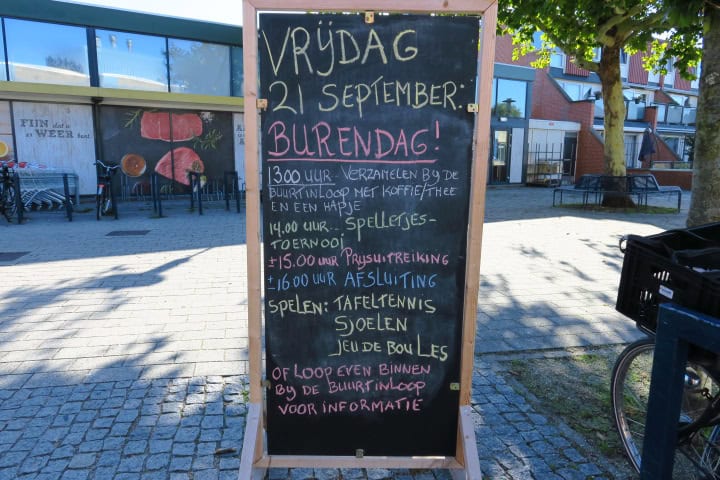 FIJN dat u
er WEER bent
VRIJDAG
21 SEPTEMBER:
BURENDAG!
1300 UUR - VERZAMELEN BIJ DE
BUURTINLOOP MET KOFFIE/THEE
EN EEN HAPJE
14.00 UUR... SPELLETJES-
TOERNOOJ
± 15.00 UUR PRIJSUITREIKING
± 16.00 UUR AFSLUITING
SPELEN: TAFELTENNIS
SJOELEN
JEU DE BOULES
OF LOOP EVEN BINNEN
BIJ DE BUURTINLOOP
VOOR INFORMATIE